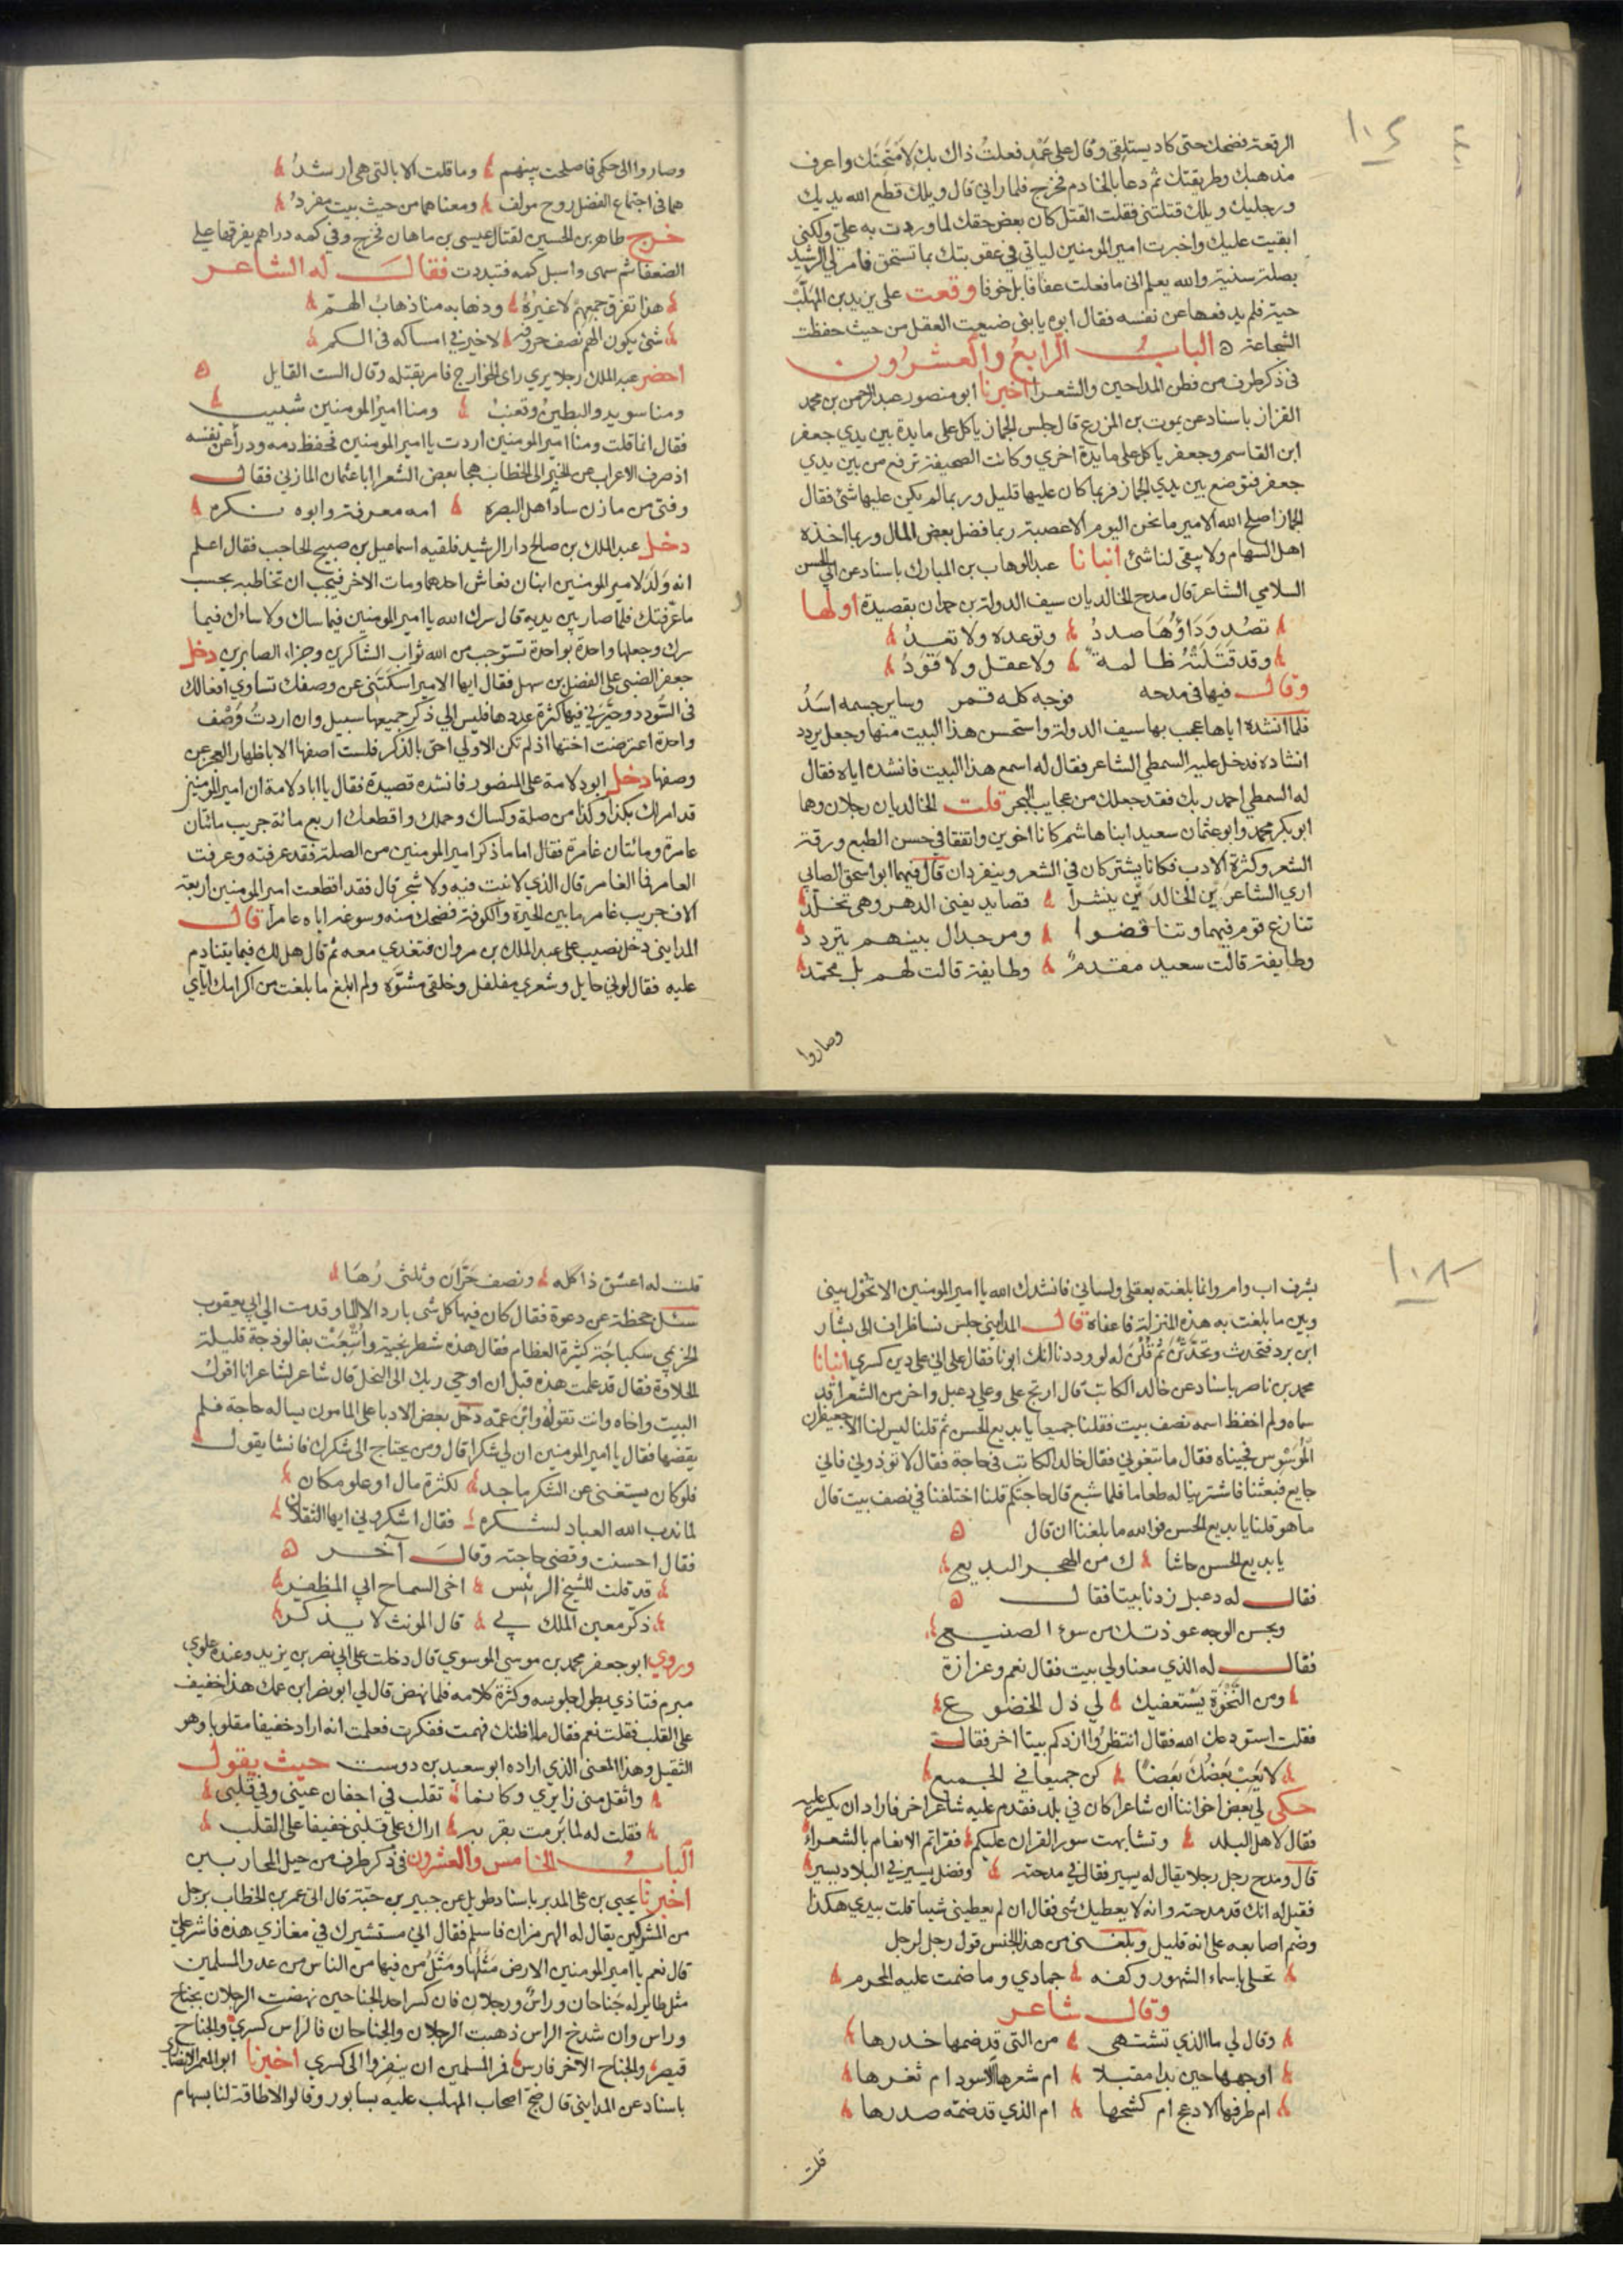 ١٠٤
الرقعة فضحك حتى كاد يستلقي وقال على عمد فعلت ذاك بك لامتحنك واعرف
مذهبك وطريقتك ثم دعا بالخادم فخرج فلما راني قال ويلك قطع الله يديك
ورجليك ويلك قتلتني فقلت القتل كان بعض حقك لما وردت به علي ولكني
ابقيت عليك واخبرت امير المومنين لياتي في عقوبتك بما تستحق فامر لي الرشيد
بصلة سنية والله يعلم انى ما فعلت عفافا بل خوفا وقعت على يزيد بن المهلب
حية فلم يدفعها عن نفسه فقال ابوه يا بني ضيعت العقل من حيث حفظت
الشجاعة ه الباب الرابع والعشرون
فى ذكر طرف من فطن المداحين والشعرا اخبرنا ابو منصور عبد الرحمن بن محمد
القزاز باسناد عن يموت بن المزرع قال جلس الجماز ياكل على مايدة بين يدي جعفر
ابن القاسم وجعفر ياكل على مايدة اخري وكانت الصحيفة ترفع من بين يدي
جعفر فتوضع بين يدي الجماز فربما كان عليها قليل وربما لم يكن عليها شئ فقال
الجماز اصلح الله الامير ما نحن اليوم الا عصبة ربما فضل بعض المال وربما اخذه
اهل السهام ولا يبقى لنا شئ انبانا عبد الوهاب بن المبارك باسناد عن ابي الحسن
السلامي الشاعر قال مدح الخالديان سيف الدولة بن حمدان بقصيدة اولها
تصد وداؤها صدد وتوعده ولا تعد
وقد قتلته ظالمة ولا عقل ولا قود
وقال فيها فى مدحه فوجه كله قمر وساير جسمه اسد
فلما انشده اياها عجب بها سيف الدولة واستحسن هذا البيت منها وجعل يردد
انشاده فدخل عليه السمطي الشاعر فقال له اسمع هذا البيت فانشده اياه فقال
له السمطي احمد ربك فقد جعلك من عجايب البحر قلت الخالديان رجلان وهما
ابو بكر محمد وابو عثمان سعيد ابنا هاشم كانا اخوين واتفقا في حسن الطبع ورقة
الشعر وكثرة الادب فكانا يشتركان في الشعر وينفردان قال فيهما ابو اسحق الصابي
اري الشاعرين الخالدين ينشرا قصايد يفنى الدهر وهى تخلد
تنازع قوم فيهما وتناقضوا ومر جدال بينهم يتردد
وطايفة قالت سعيد مقدم وطايفة قالت لهم بل محمد
وصاروا
وصاروا الى حكمي فاصلحت بينهم وما قلت الا بالتي هى ارشد
هما في اجتماع الفضل روح مولف ومعناهما من حيث بيت مفرد
خرج طاهر بن الحسين لقتال عيسى بن ماهان فخرج وفي كمه دراهم يفرقها على
الضعفا ثم سهى واسبل كمه فتبددت فقال له الشاعر
هذا تفرق جمعهم لا غيره وذهابه منا ذهاب الهم
شئ يكون الهم نصف حروفه لا خير في امساكه فى الكم
احضر عبد الملك رجلا يري راى الخوارج فامر بقتله وقال الست القايل ه
ومنا سويد والبطين وقعنب ومنا امير المومنين شبيب
فقال انما قلت ومنا امير المومنين اردت يا امير المومنين فحفظ دمه ودرأ عن نفسه
اذ صرف الاعراب عن الخبر الى الخطاب هجا بعض الشعرا ابا عثمان المازني فقال
وفتى من مازن ساد اهل البصرة امه معرفة وابوه نكره
دخل عبد الملك بن صالح دار الرشيد فلقيه اسماعيل بن صبيح الحاجب فقال اعلم
انه ولد لامير المومنين ابنان فعاش احدهما ومات الاخر فيجب ان تخاطبه بحسب
ما عرفتك فلما صار بين يديه قال سرك الله يا امير المومنين فيما ساك ولا ساءك فيما
سرك وجعلها واحدة بواحدة تستوجب من الله ثواب الشاكرين وجزاء الصابرين دخل
جعفر الضبي على الفضل بن سهل فقال ايها الامير اسكتني عن وصفك تساوي افعالك
فى السودد وحيرني فيها كثرة عددها فليس الي ذكر جميعها سبيل وان اردت وصف
واحدة اعترضت اختها اذ لم تكن الاولي احق بالذكر فلست اصفها الا باظهار العجز عن
وصفها دخل ابو دلامة على المنصور فانشده قصيدة فقال يا ابا دلامة ان امير المومنين
قد امر لك بكذا وكذا من صلة وكساك وحملك واقطعك اربع مائة جريب مائتان
عامرة ومائتان غامرة فقال اما ما ذكر امير المومنين من الصلة فقد عرفته وعرفت
العامر فما الغامر قال الذي لا نبت فيه ولا شجر قال فقد اقطعت امير المومنين اربعة
الاف جريب غامر ما بين الحيرة والكوفة فضحك منه وسوغه اياه عامرا قال
المدايني دخل نصيب على عبد الملك بن مروان فتغدي معه ثم قال هل لك فيما يتنادم
عليه فقال لوني حايل وشعري مفلفل وخلقي مشوه ولم ابلغ ما بلغت من اكرامك اياي
١٠٥
بشرف اب وام وانما بلغته بعقلي ولساني فانشدك الله يا امير المومنين الا تحول بيني
وبين ما بلغت به هذه المنزلة فاعفاه قال المدايني جلس نسا ظراف الى بشار
ابن برد فتحدث وتحدثن ثم قلن له لو وددنا انك ابونا فقال على اني على دين كسري انبانا
محمد بن ناصر باسناد عن خالد الكاتب قال ارتج على وعلى دعبل واخر من الشعرا قد
سماه ولم احفظ اسمه نصف بيت فقلنا جميعا يا بديع الحسن ثم قلنا ليس لنا الا جعيفران
الموسوس فجيناه فقال ما تبغوني فقال خالد الكاتب فى حاجة فقال لا توذوني فاني
جايع فبعثنا فاشترينا له طعاما فلما شبع قال حاجتكم قلنا اختلفنا في نصف بيت قال
ما هو قلنا يا بديع الحسن فوالله ما بلغنا ان قال ه
يا بديع الحسن حاشا لك من الهجر البديع
فقال له دعبل زدنا بيتا فقال ه
وبحسن الوجه عوذتك من سوء الصنيع
فقال له الذي معنا ولي بيت فقال نعم وعزازة
ومن النخوة يستعفيك لي ذل الخضوع
فقلت استودعك الله فقال انتظروا ازدكم بيتا اخر فقال
لا يعب بعضك بعضا كن جميعا في الجميع
حكى لي بعض اخواننا ان شاعرا كان في بلد فقدم عليه شاعر اخر فاراد ان يكسر عليه
فقال لاهل البلد وتشابهت سور القران عليكم فقراتم الانعام بالشعراء
قال ومدح رجل رجلا يقال له يسير فقال في مدحته وفضل يسير في البلاد يسير
فقيل له انك قد مدحته وانه لا يعطيك شى فقال ان لم يعطيني شيا قلت بيدي هكذا
وضم اصابعه على انه قليل وبلغني من هذا الجنس قول رجل لرجل
تحلى باسماء الشهور وكفه جمادي وما ضمت عليه المحرم
وقال شاعر
وقال لي ما الذي تشتهى من التى قد ضمها خدرها
اوجهها حين بدا مقبلا ام شعرها الاسود ام ثغرها
ام طرفها الادعج ام كشحها ام الذي قد ضمه صدرها
قلت
قلت له اعشق ذا كله ونصف حران وثلثى رها
سئل جحظة عن دعوة فقال كان فيها كل شى بارد الا الما وقدمت الي ابي يعقوب
الخزيمي سكباجة كثيرة العظام فقال هذه شطرنجية واتبعت بفالوذجة قليلة
الحلاوة فقال قد علمت هذه قبل ان اوحي ربك الى النحل قال شاعر لشاعر انا اقول
البيت واخاه وانت تقوله وابن عمه دخل بعض الادبا على المامون يساله حاجة فلم
يقضها فقال يا امير المومنين ان لي شكرا قال ومن يحتاج الى شكرك فانشا يقول
فلو كان يستغنى عن الشكر ماجد لكثرة مال او علو مكان
لما ندب الله العباد لشكره فقال اشكروني ايها الثقلان
فقال احسنت وقضى حاجته وقال آخر ه
قد قلت للشيخ الرئيس اخى السماح ابي المظفر
ذكر معين الملك لي قال المونث لا يذكر
وروي ابو جعفر محمد بن موسى الموسوي قال دخلت على ابي نصر بن يزيد وعنده علوي
مبرم فتاذي بطول جلوسه وكثرة كلامه فلما نهض قال لي ابو نصر ابن عمك هذا خفيف
على القلب فقلت نعم فقال ما اظنك فهمت ففكرت فعلمت انه اراد خفيفا مقلوبا وهو
الثقيل وهذا المعنى الذي اراده ابو سعيد بن دوست حيث يقول
واثقل منى زايري وكانما تقلب في اجفان عيني وفي قلبى
فقلت له لما برمت بقربه اراك على قلبي خفيفا على القلب
الباب الخامس والعشرون فى ذكر طرف من حيل المحاربين
اخبرنا يحيى بن على المدبر باسناد طويل عن جبير بن حية قال اتى عمر بن الخطاب برجل
من المشركين يقال له الهرمزان فاسلم فقال اني مستشيرك في مغازي هذه فاشر على
قال نعم يا امير المومنين الارض مثلها ومثل من فيها من الناس من عدو المسلمين
مثل طاير له جناحان وراس ورجلان فان كسر احد الجناحين نهضت الرجلان بجناح
وراس وان شدخ الراس ذهبت الرجلان والجناحان فالراس كسري والجناح
قيصر والجناح الاخر فارس فمر المسلمين ان ينفروا الى كسري اخبرنا ابو المعمر الانصاري
باسناد عن المدايني قال ضج اصحاب المهلب عليه بسابور وقالوا لا طاقة لنا بسهام